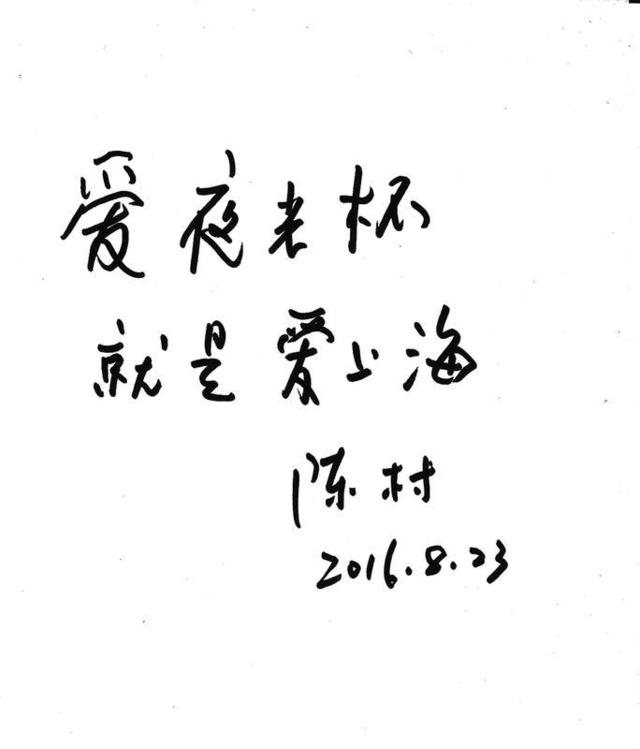 爱夜光杯
就是爱上海
陈村
2016.8.23